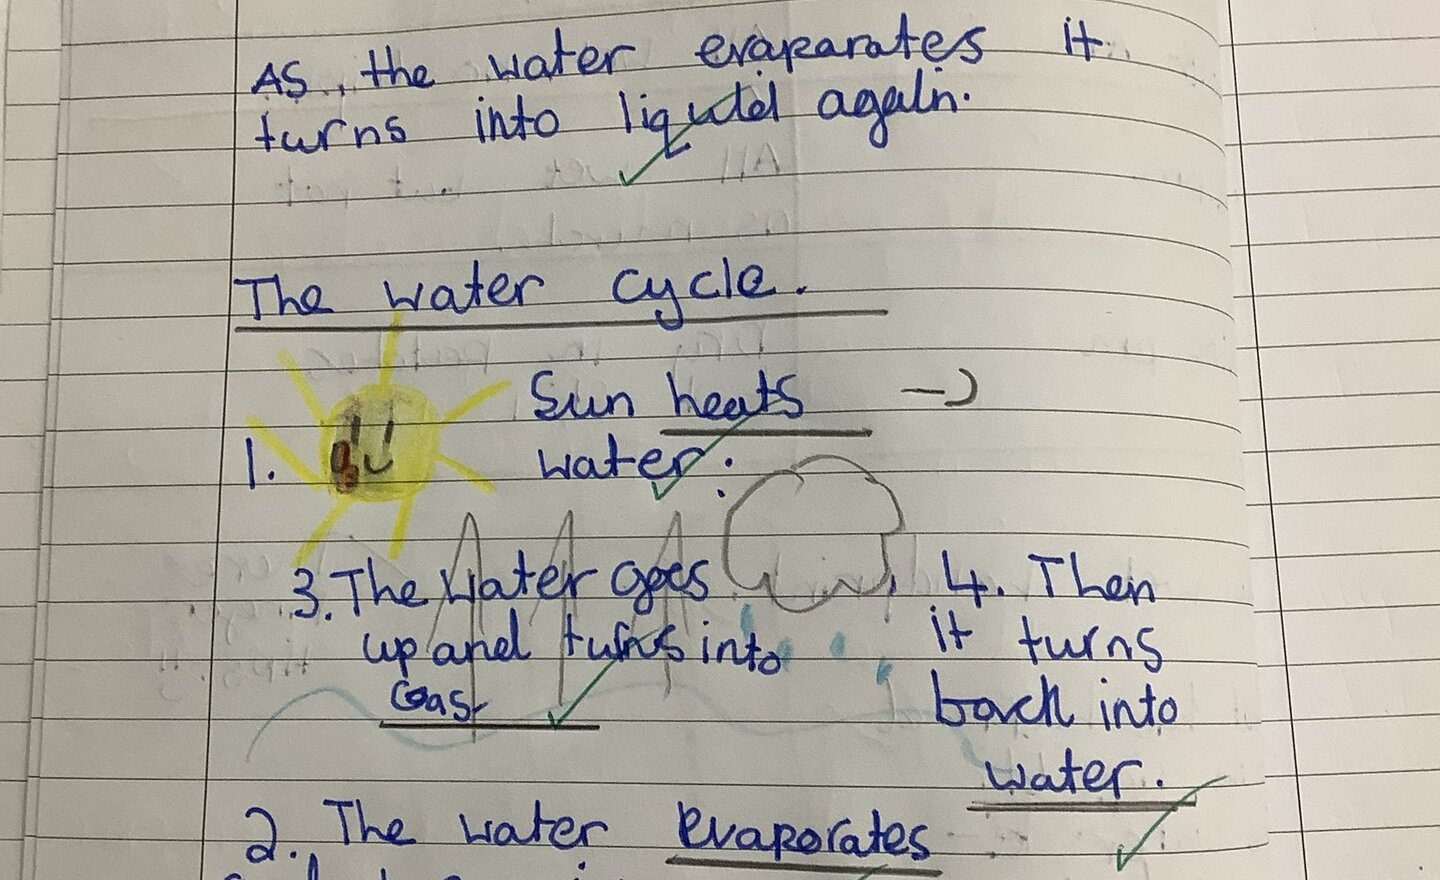 As, the water evaparates it
turns into liquid again.
The water cycle.
1. Sun heats
water.
3. The water goes
up and turns into
Gas
4. Then
it turns
back into
water.
2. The water evaporates